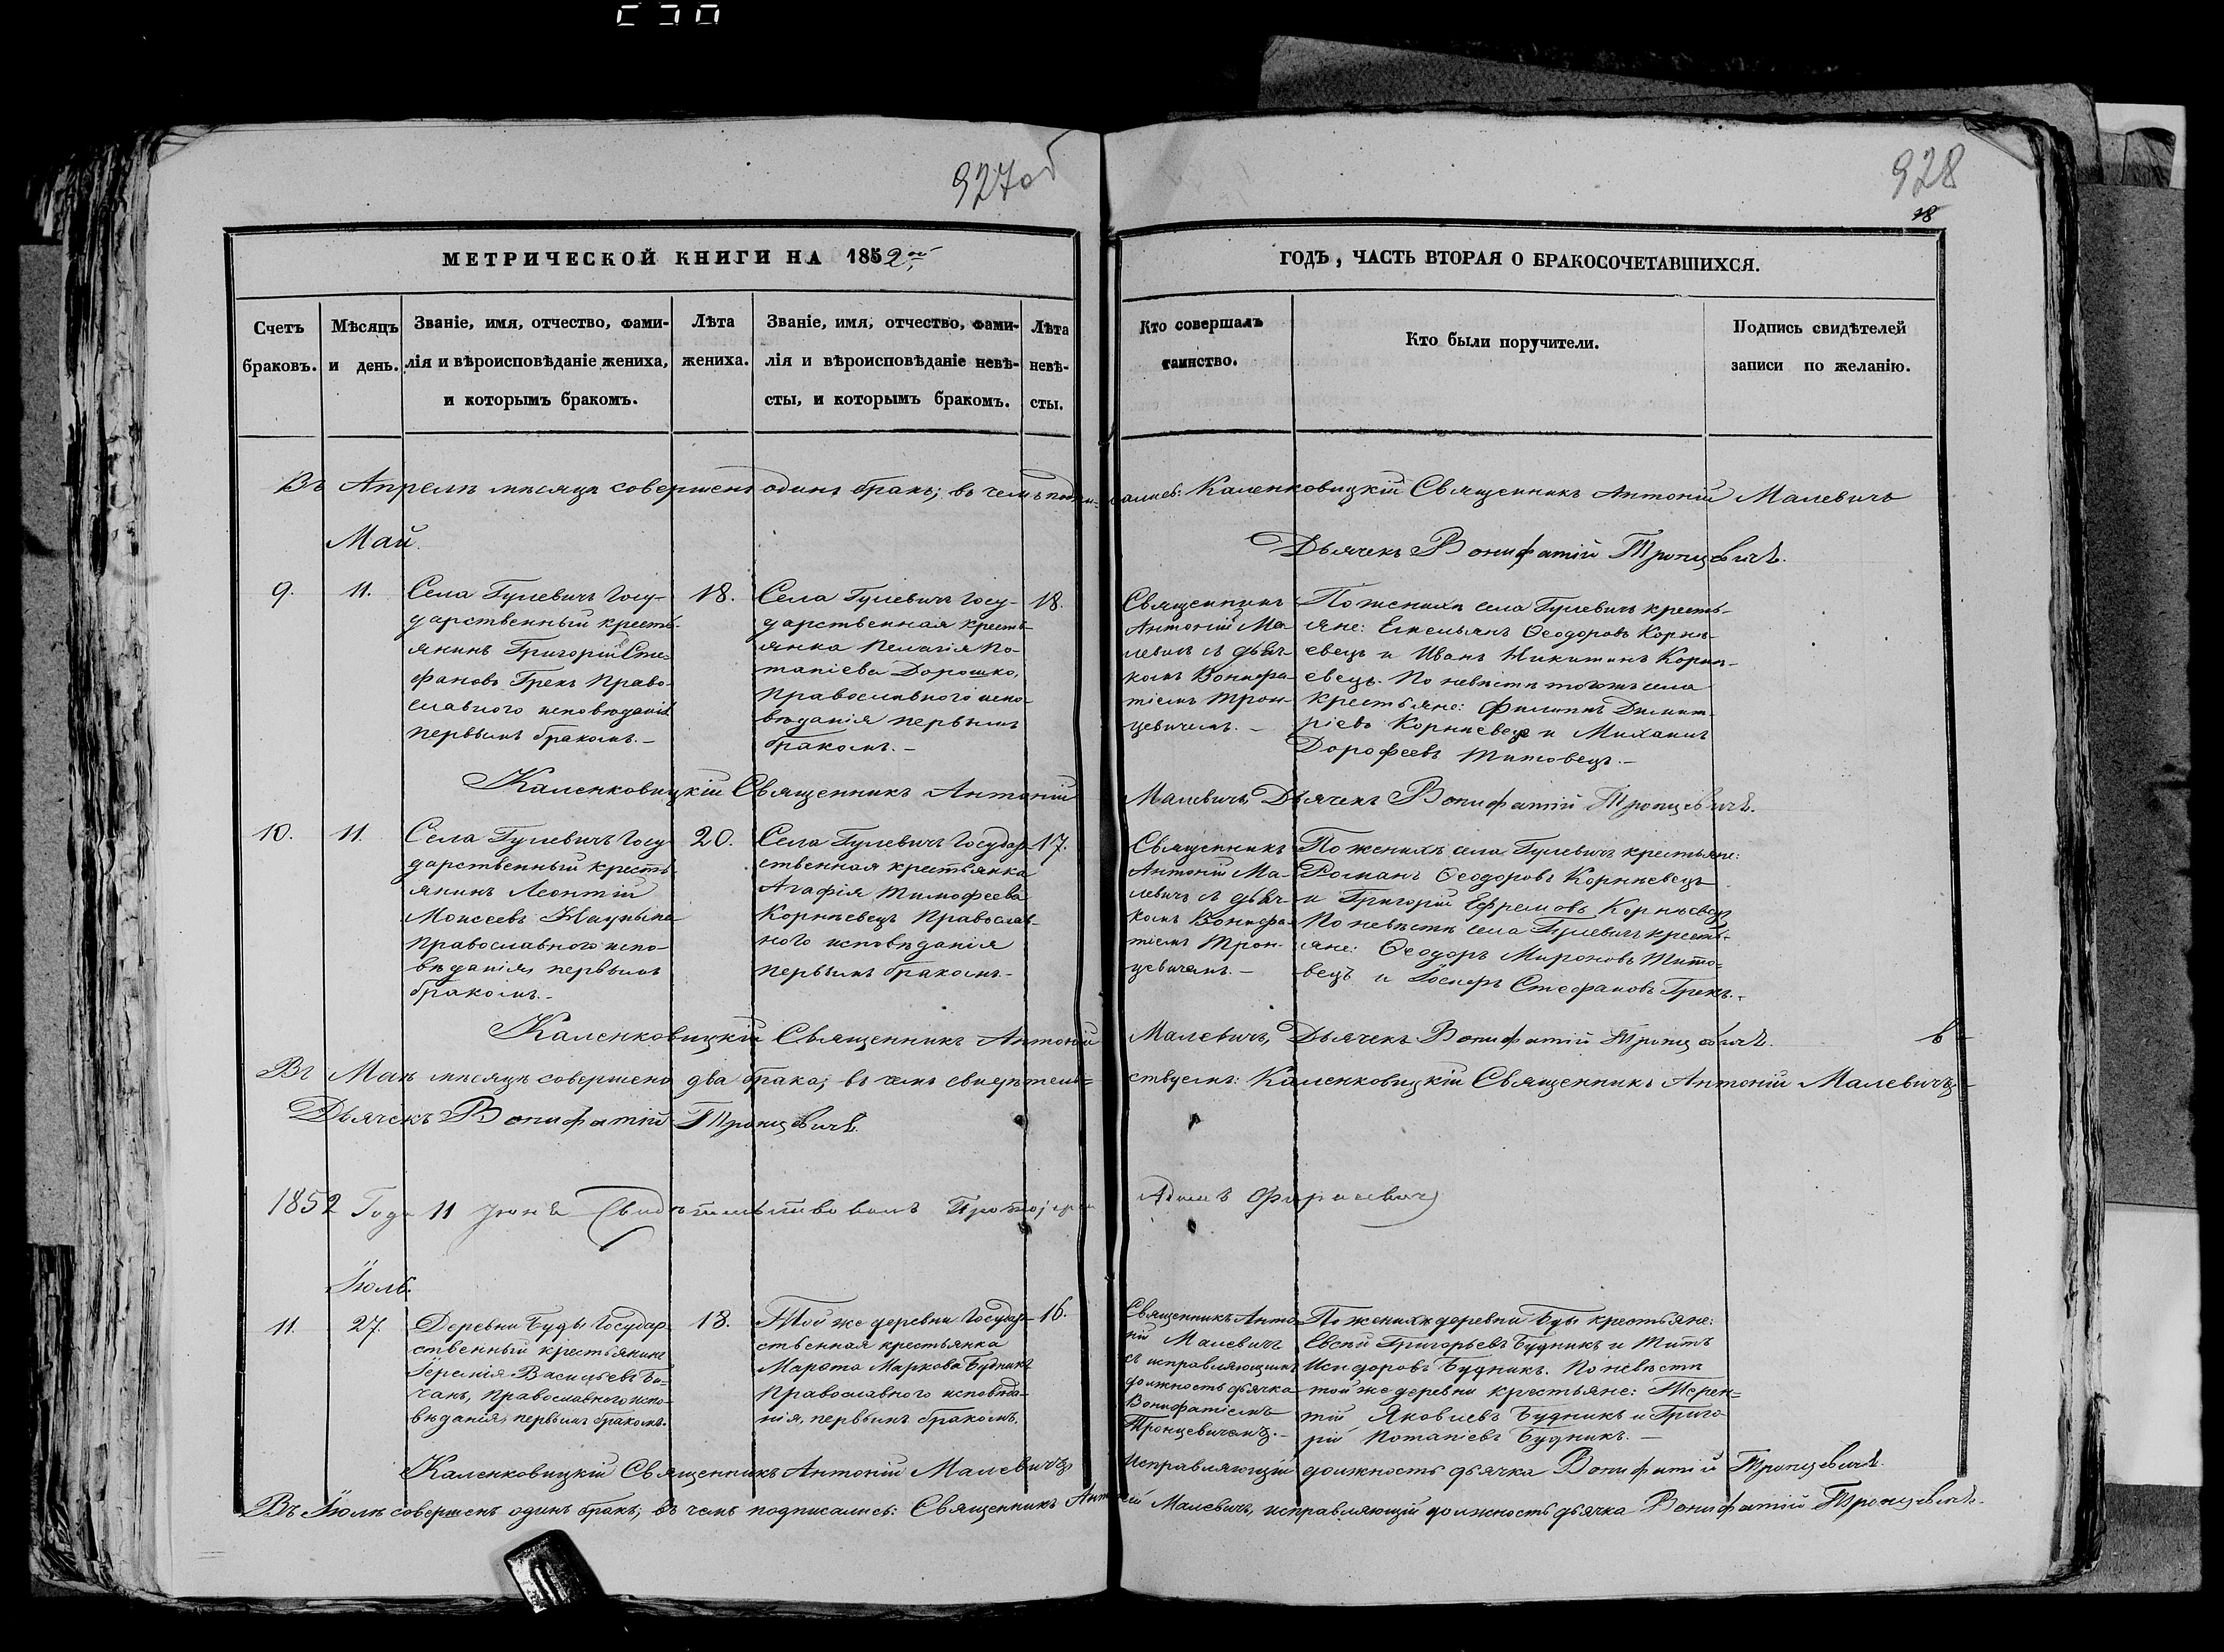 927об
928
18
МЕТРИЧЕСКОЙ КНИГИ НА 1852ой
ГОДЪ, ЧАСТЬ ВТОРАЯ О БРАКОСОЧЕТАВШИХСЯ.
Счетъ
браковъ.
Мѣсяцъ
и день.
Званіе, имя, отчество, фами-
лія и вѣроисповѣданіе жениха,
и которымъ бракомъ.
Лѣта
жениха.
Званіе, имя, отчество, фами-
лія и вѣроисповѣданіе невѣ-
сты, и которымъ бракомъ.
Лѣта
невѣ-
сты.
Кто совершалъ
таинство.
Кто были поручители.
Подпись свидѣтелей
записи по желанію.
Въ Апрелѣ мѣсяцѣ совершенъ одинъ бракъ; въ чемъ подписались: Каленковицкій Священникъ Антоній Малевичъ
Дьячекъ Вонифатій Тронцевичъ.
Май.
9.
11.
Села Гулевичъ Госу-
дарственный кресть-
янинъ Григорій Сте-
фановъ Грекъ Право-
славного исповѣданія
первымъ бракомъ.-
18.
Села Гулевичъ Госу-
дарственная кресть-
янка Пелагія По-
тапіева Дорошко,
Православного испо-
вѣданія первымъ
бракомъ.-
18.
Священникъ
Антоній Ма-
левичъ съ дьяч-
комъ Вонифа-
тіемъ Трон-
цевичемъ.-
По женихѣ села Гулевичъ кресть-
яне: Емельянъ Ѳеодоровъ Корнѣ-
евецъ и Иванъ Никитинъ Корнѣ-
евецъ. По невѣстѣ тогожъ села
крестьяне: Филиппъ Димит-
ріевъ Корнѣевецъ и Михаилъ
Дорофеевъ Титовецъ.-
Каленковицкій Священникъ Антоній Малевичъ, Дьячекъ Вонифатій Тронцевичъ.
10.
11.
Села Гулевичъ Госу
дарственный кресть-
янинъ Леонтій
Моисеевъ
Православного испо-
вѣданія, первымъ
бракомъ.-
20.
Села Гулевичъ Государ-
ственная крестьянка
Агафія Тимофеева
Корнѣевецъ Православ-
ного исповѣданія
первымъ бракомъ.-
17.
Священникъ
Антоній Ма-
левичъ съ дьяч-
комъ Вонифа-
тіемъ Трон-
цевичемъ.-
По женихѣ села Гулевичъ крестьяне:
Романъ Ѳеодоровъ Корнѣевецъ
и Григорій Ефремовъ Корнѣевецъ
По невѣстѣ села Гулевичъ кресть-
яне: Ѳеодоръ Мироновъ Тито-
вецъ и Іосифъ Стефановъ Грекъ.-
Каленковицкій Священникъ Антоній Малевичъ, Дьячекъ Вонифатій Тронцевичъ.
Въ Маѣ мѣсяцѣ совершено два брака; въ чемъ свидѣтель-
ствуемъ: Каленковицкій Священникъ Антоній Малевичъ
Дьячекъ Вонифатій Тронцевичъ.
1852 Года 11 Іюня Свидѣтельствовалъ Протоіерей Адамъ
Іюль.
11.
27.
Деревни Буды Государ-
ственный крестьянинъ
Іеремія Васильевъ Бо-
чанъ, Православного испо-
вѣданія, первымъ бракомъ.
18.
Той же деревни Государ-
ственная крестьянка
Марѳта Маркова Будникъ
Православного исповѣда-
нія, первымъ бракомъ.
16.
Священникъ Анто-
ній Малевичъ
съ исправляющимъ
должность дьячка
Вонифатіемъ
Тронцевичемъ.-
По женихѣ деревни Буды крестьяне:
Евсѣй Григорьевъ Будникъ и Титъ
Исидоровъ Будникъ. По невѣстѣ
той же деревни крестьяне: Терен-
тій Яковлевъ Будникъ и Григо-
рій Потапіевъ Будникъ.-
Каленковицкій Священникъ Антоній Малевичъ Исправляющій должность дьячка Вонифатій Тронцевичъ.
Въ Іюлѣ совершенъ одинъ бракъ; въ чемъ подписались: Священникъ Антоній Малевичъ, исправляющій должность дьячка Вонифатій Тронцевичъ.